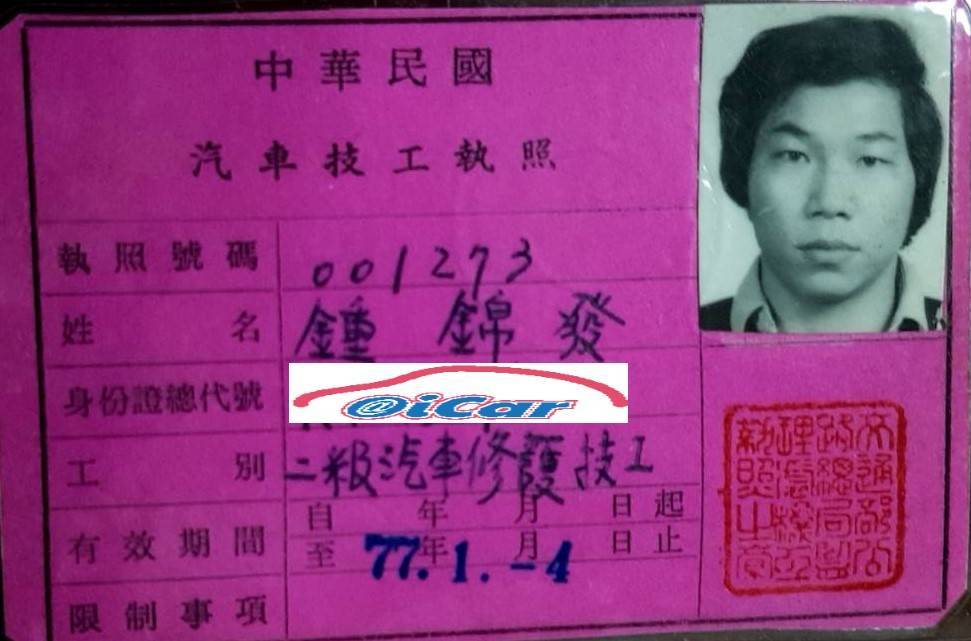 中華民國
汽車技工執照
執照號碼 001273
姓名 鍾錦發
身份證總代號 @iCar
工別 二級汽車修護技工
有效期間 自 年 月 日起
至 77年.1.月-4 日止
限制事項
交通部公
路總局監
理汽機工
執照之章